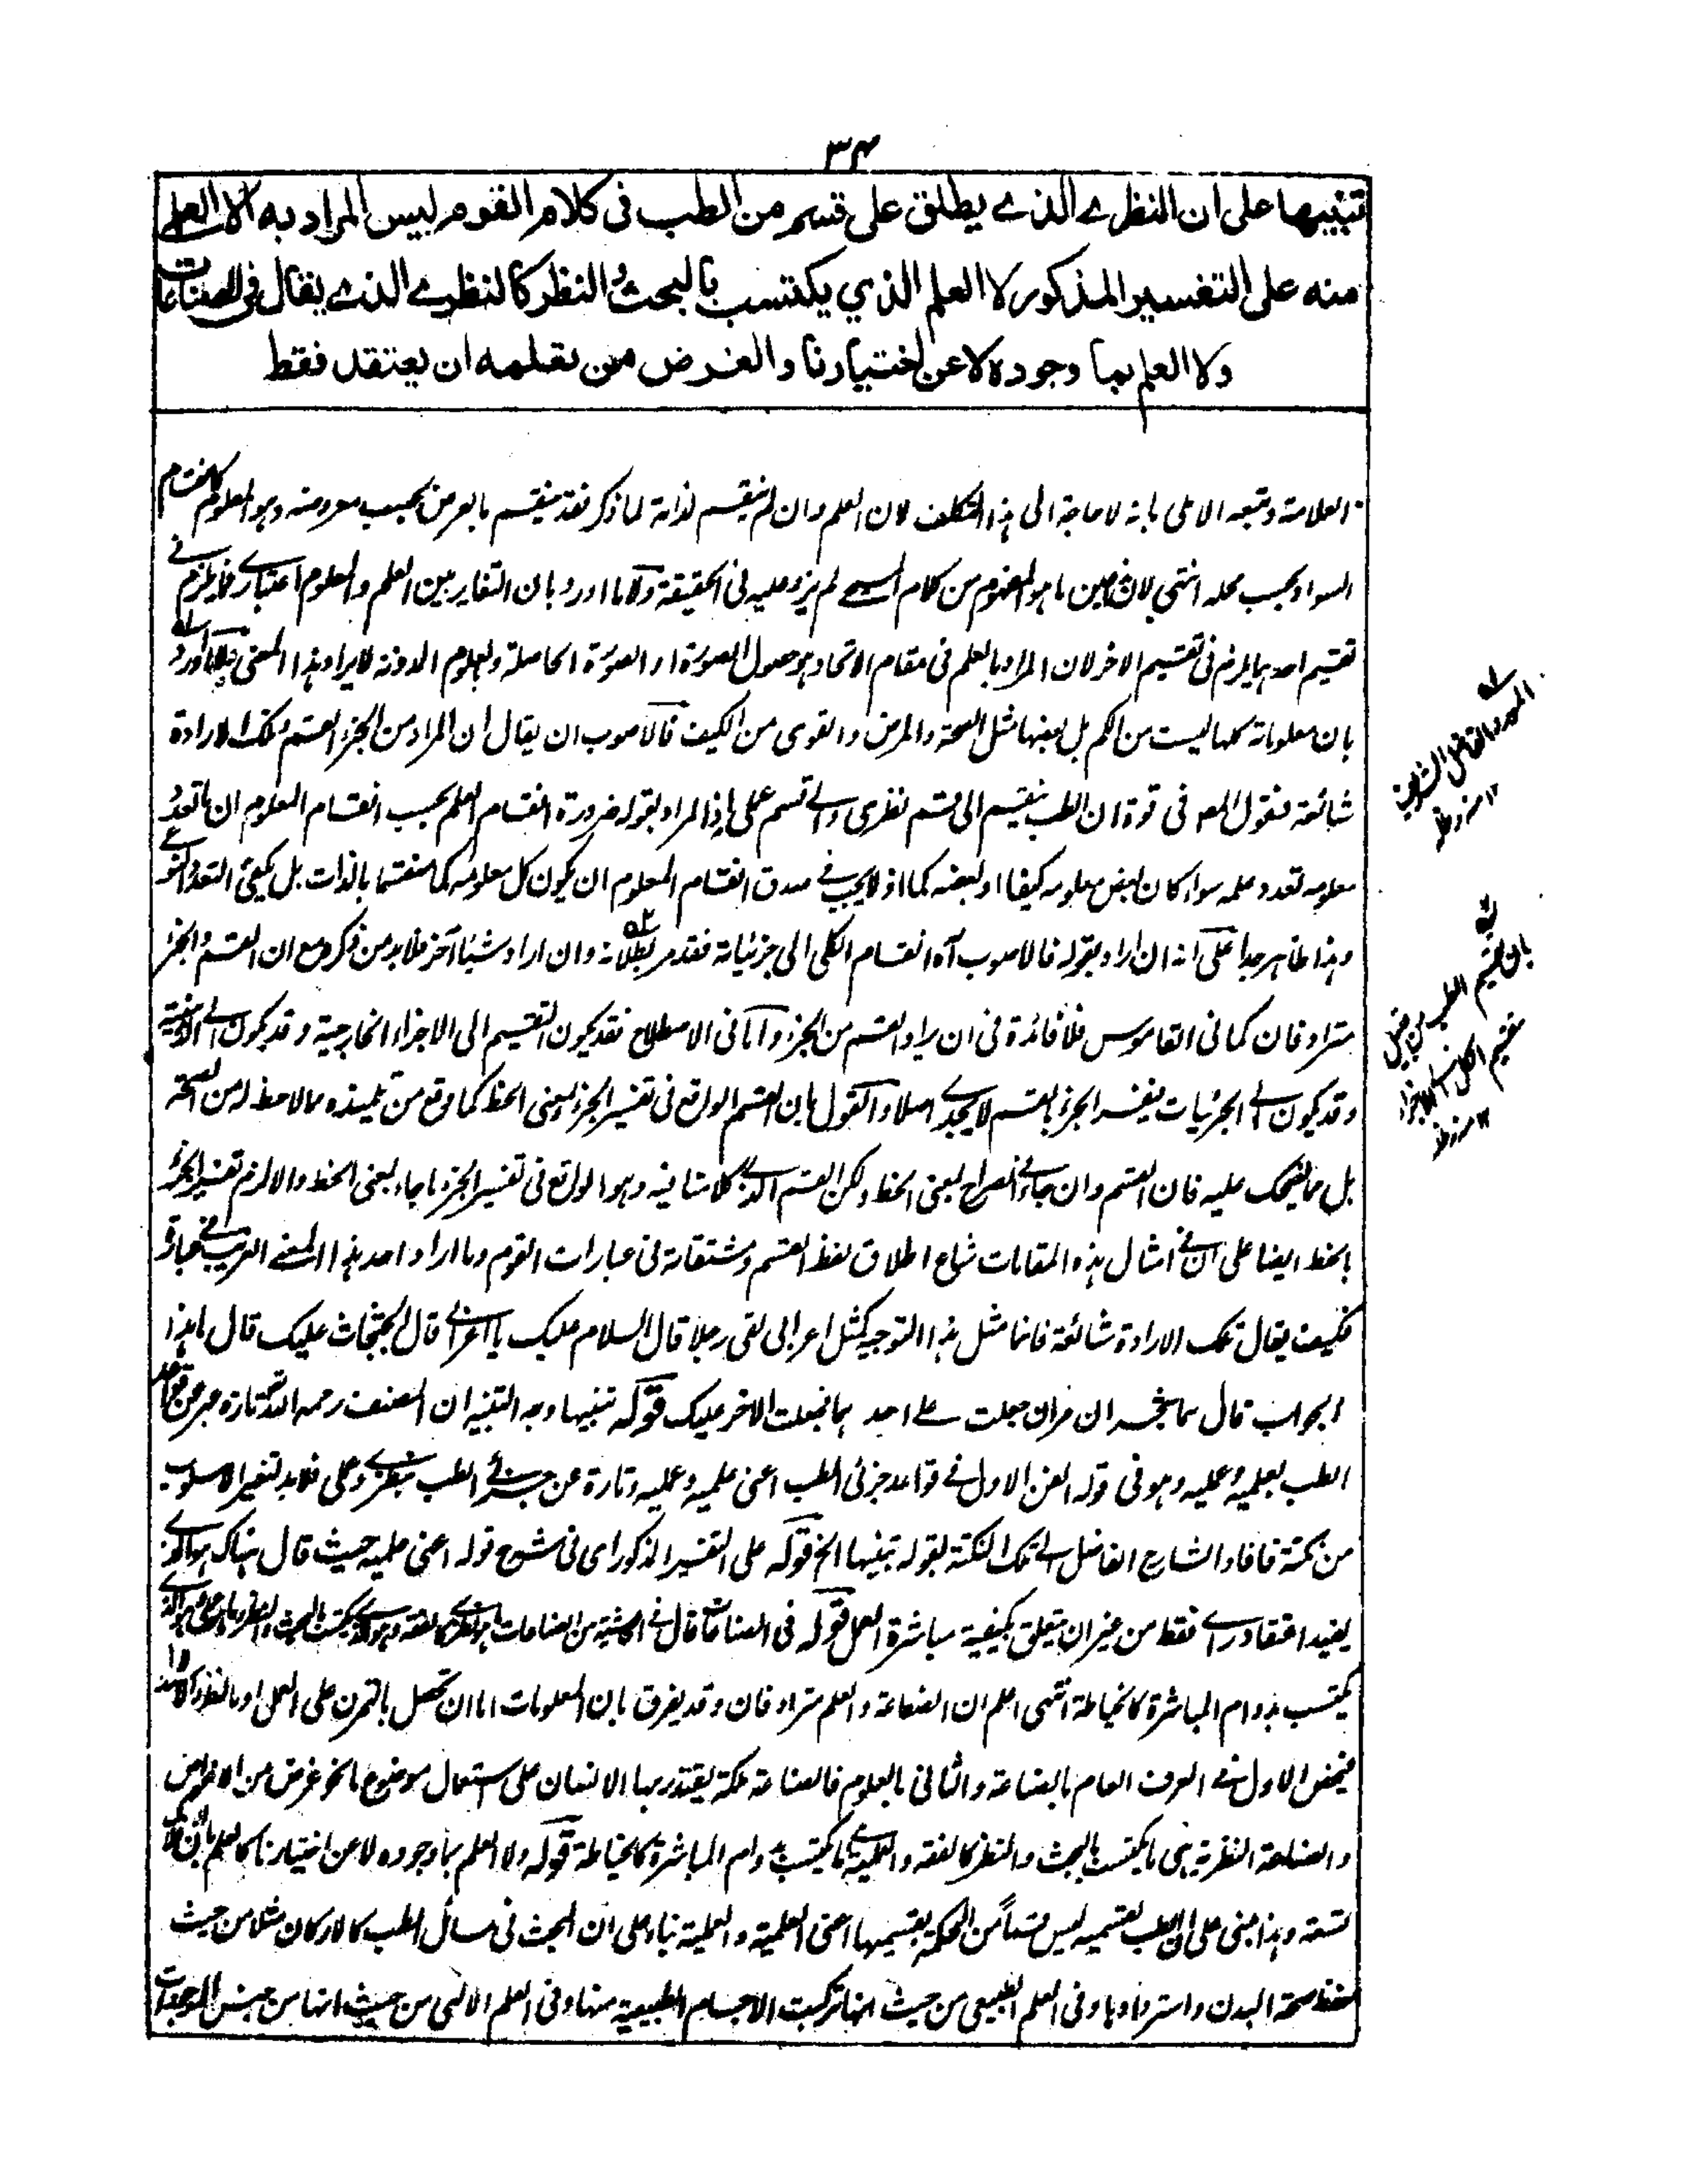 ٣٤
تنبيها على ان النظرے الذے يطلق على قسم من الطب فى كلام القوم ليس المراد به الا العلم
منه على التفسير المذكور لا العلم الذي يكتسب بالبحث والنظر كالنظرے الذے يقال فى الصناعات
ولا العلم بما وجوده لا عن اختيارنا والغرض من تعلمه ان يعتقد فقط
العلامة وتبعه الاملى بانه لا حاجة الى هذا التكلف لان العلم وان لم ينقسم لذاته لما ذكر فقد ينقسم بالعرض بحسب معروضه وهو المعلوم كانقسام
السواد بحسب محله انتهى لان ما هو المفهوم من كلام لم يزد عليه فى الحقيقة ولا ما اورد بان التغاير بين العلم والمعلوم اعتبارے فما يلزم فے
تقسيم احدهما يلزم فى تقسيم الاخر لان المراد بالعلم فى مقام الاتحاد هو حصول الصورة او الصورة الحاصلة والعلوم المدونة لا يراد بهذا المعنى ولا ما اورد
بان معلوماته كلها ليست من الكم بل بعضها مثل الصحة والمرض والقوى من الكيف فالاصوب ان يقال ان المراد من الجزء القسم وتلك الارادة
شائعة فقول المص فى قوة ان الطب ينقسم الى قسم نظرى والى قسم عملى وهذا المراد بقوله ضرورة انقسام العلم بحسب انقسام المعلوم ان ما تعدد
معلومه تعدد علمه سواء كان بعض معلومه كيفا او بعضه كما اذ لا يجب فے صدق انقسام المعلوم ان يكون كل معلومه كما منقسما بالذات بل يكفى التعدد
وهذا ظاهر جدا على انه ان اراد بقوله فالاصوب آه انقسام الكلى الى جزئياته فقد مر بطلانه وان اراد شيئا آخر فلا بد من ذكره مع ان القسم والجزء
مترادفان كما فى القاموس فلا فائدة فى ان يراد القسم من الجزء واما فى الاصطلاح فقد يكون التقسيم الى الاجزاء الخارجية وقد يكون الى الذهنية
وقد يكون الے الجزئيات فتفسير الجزء بالقسم لا يجدے اصلا والقول بان القسم الواقع فى تفسير الجزء بمعنى الحظ كما وقع من تلميذه مما لا حظ له من الصحة
بل مما يضحك عليه فان القسم وان جاء فے الصراح بمعنى الحظ ولكن القسم الذے كلامنا فيه وهو الواقع فى تفسير الجزء ما جاء بمعنى الحظ والا لزم تفسير الجزء
بالحظ ايضا على ان فے امثال هذه المقامات شاع اطلاق لفظ القسم ومشتقاته فى عبارات القوم وما اراد احد هذا المعنے الغريب فے عبارة
فكيف يقال تلك الارادة شائعة فانما مثل هذا التوجيه كمثل اعرابى لقى رجلا قال السلام عليك يا اعرابے قال الجثجاث عليك قال ما هذا
الجواب قال هما شجران مران جعلت علے احدهما فجعلت الاخر عليك قوله تنبيها وجه التنبيه ان المصنف رحمه الله تارة عبر عن قواعد
الطب بعلميه وعمليه وهو فى قوله الفن الاول فے قواعد جزئى الطب اعنى علميه وعمليه وتارة عن جزئے الطب بنظرے وعملى فلا بد لتغيير الاسلوب
من نكتة فافاد الشارح الفاضل الے تلك النكتة بقوله تنبيها الخ قوله على التفسير المذكور اى فى شرح قوله اعنى علميه حيث قال هناك هو الذے
يفيد اعتقاد راے فقط من غير ان يتعلق بكيفية مباشرة العمل قوله فى الصناعات قال فے الحاشية من الصناعات ما هو نظرے كالفقه وهو الذے يكتسب بالبحث والنظر ومنها عملے هو الذے
يكتسب بدوام المباشرة كالخياطة انتهى اعلم ان الصناعة والعلم مترادفان وقد يفرق بان المعلومات اما ان تحصل بالتمرن على العمل او بالنظر والاستدلال
فيخص الاول فے العرف العام بالصناعة والثانى بالعلوم فالصناعة ملكة يقتدر بها الانسان على استعمال موضوع ما نحو غرض من الاغراض
والصناعة النظرية هى ما يكتسب بالبحث والنظر كالفقه والعملية ما يكتسب بدوام المباشرة كالخياطة قوله ولا العلم بما وجوده لا عن اختيارنا كالعلم بان الافلاك
تسعة وهذا مبنى على ان الطب بقسميه ليس قسماً من الحكمة بقسميها اعنى العلمية والعملية بناء على ان البحث فى مسائل الطب كالاركان مثلا من حيث
حفظ صحة البدن واستردادها وفى العلم الطبيعى من حيث انها تركبت الاجسام الطبيعية منها وفى العلم الالهى من حيث انها من جنس الموجودات
المورد الفاضل الشريف
١٢ منه
بان تقسيم الطب من قبيل
تقسيم الكل الے الاجزاء
١٢ منه